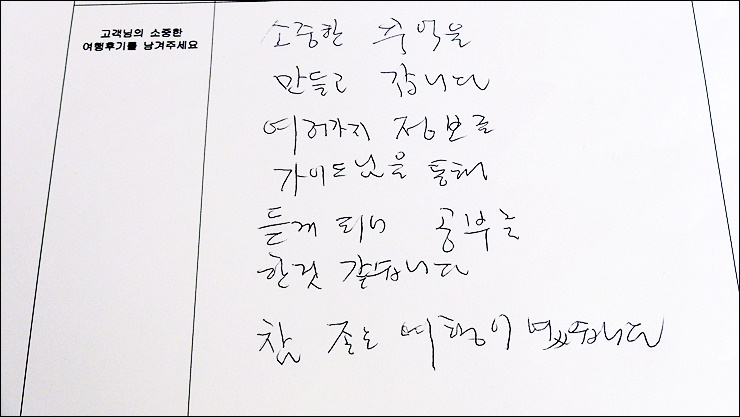 고객님의 소중한
여행후기를 남겨주세요
소중한 추억을
만들고 갑니다
여러가지 정보를
가이드님을 통해
듣게 되어 공부를
한것 같습니다
참 좋은 여행이 였습니다